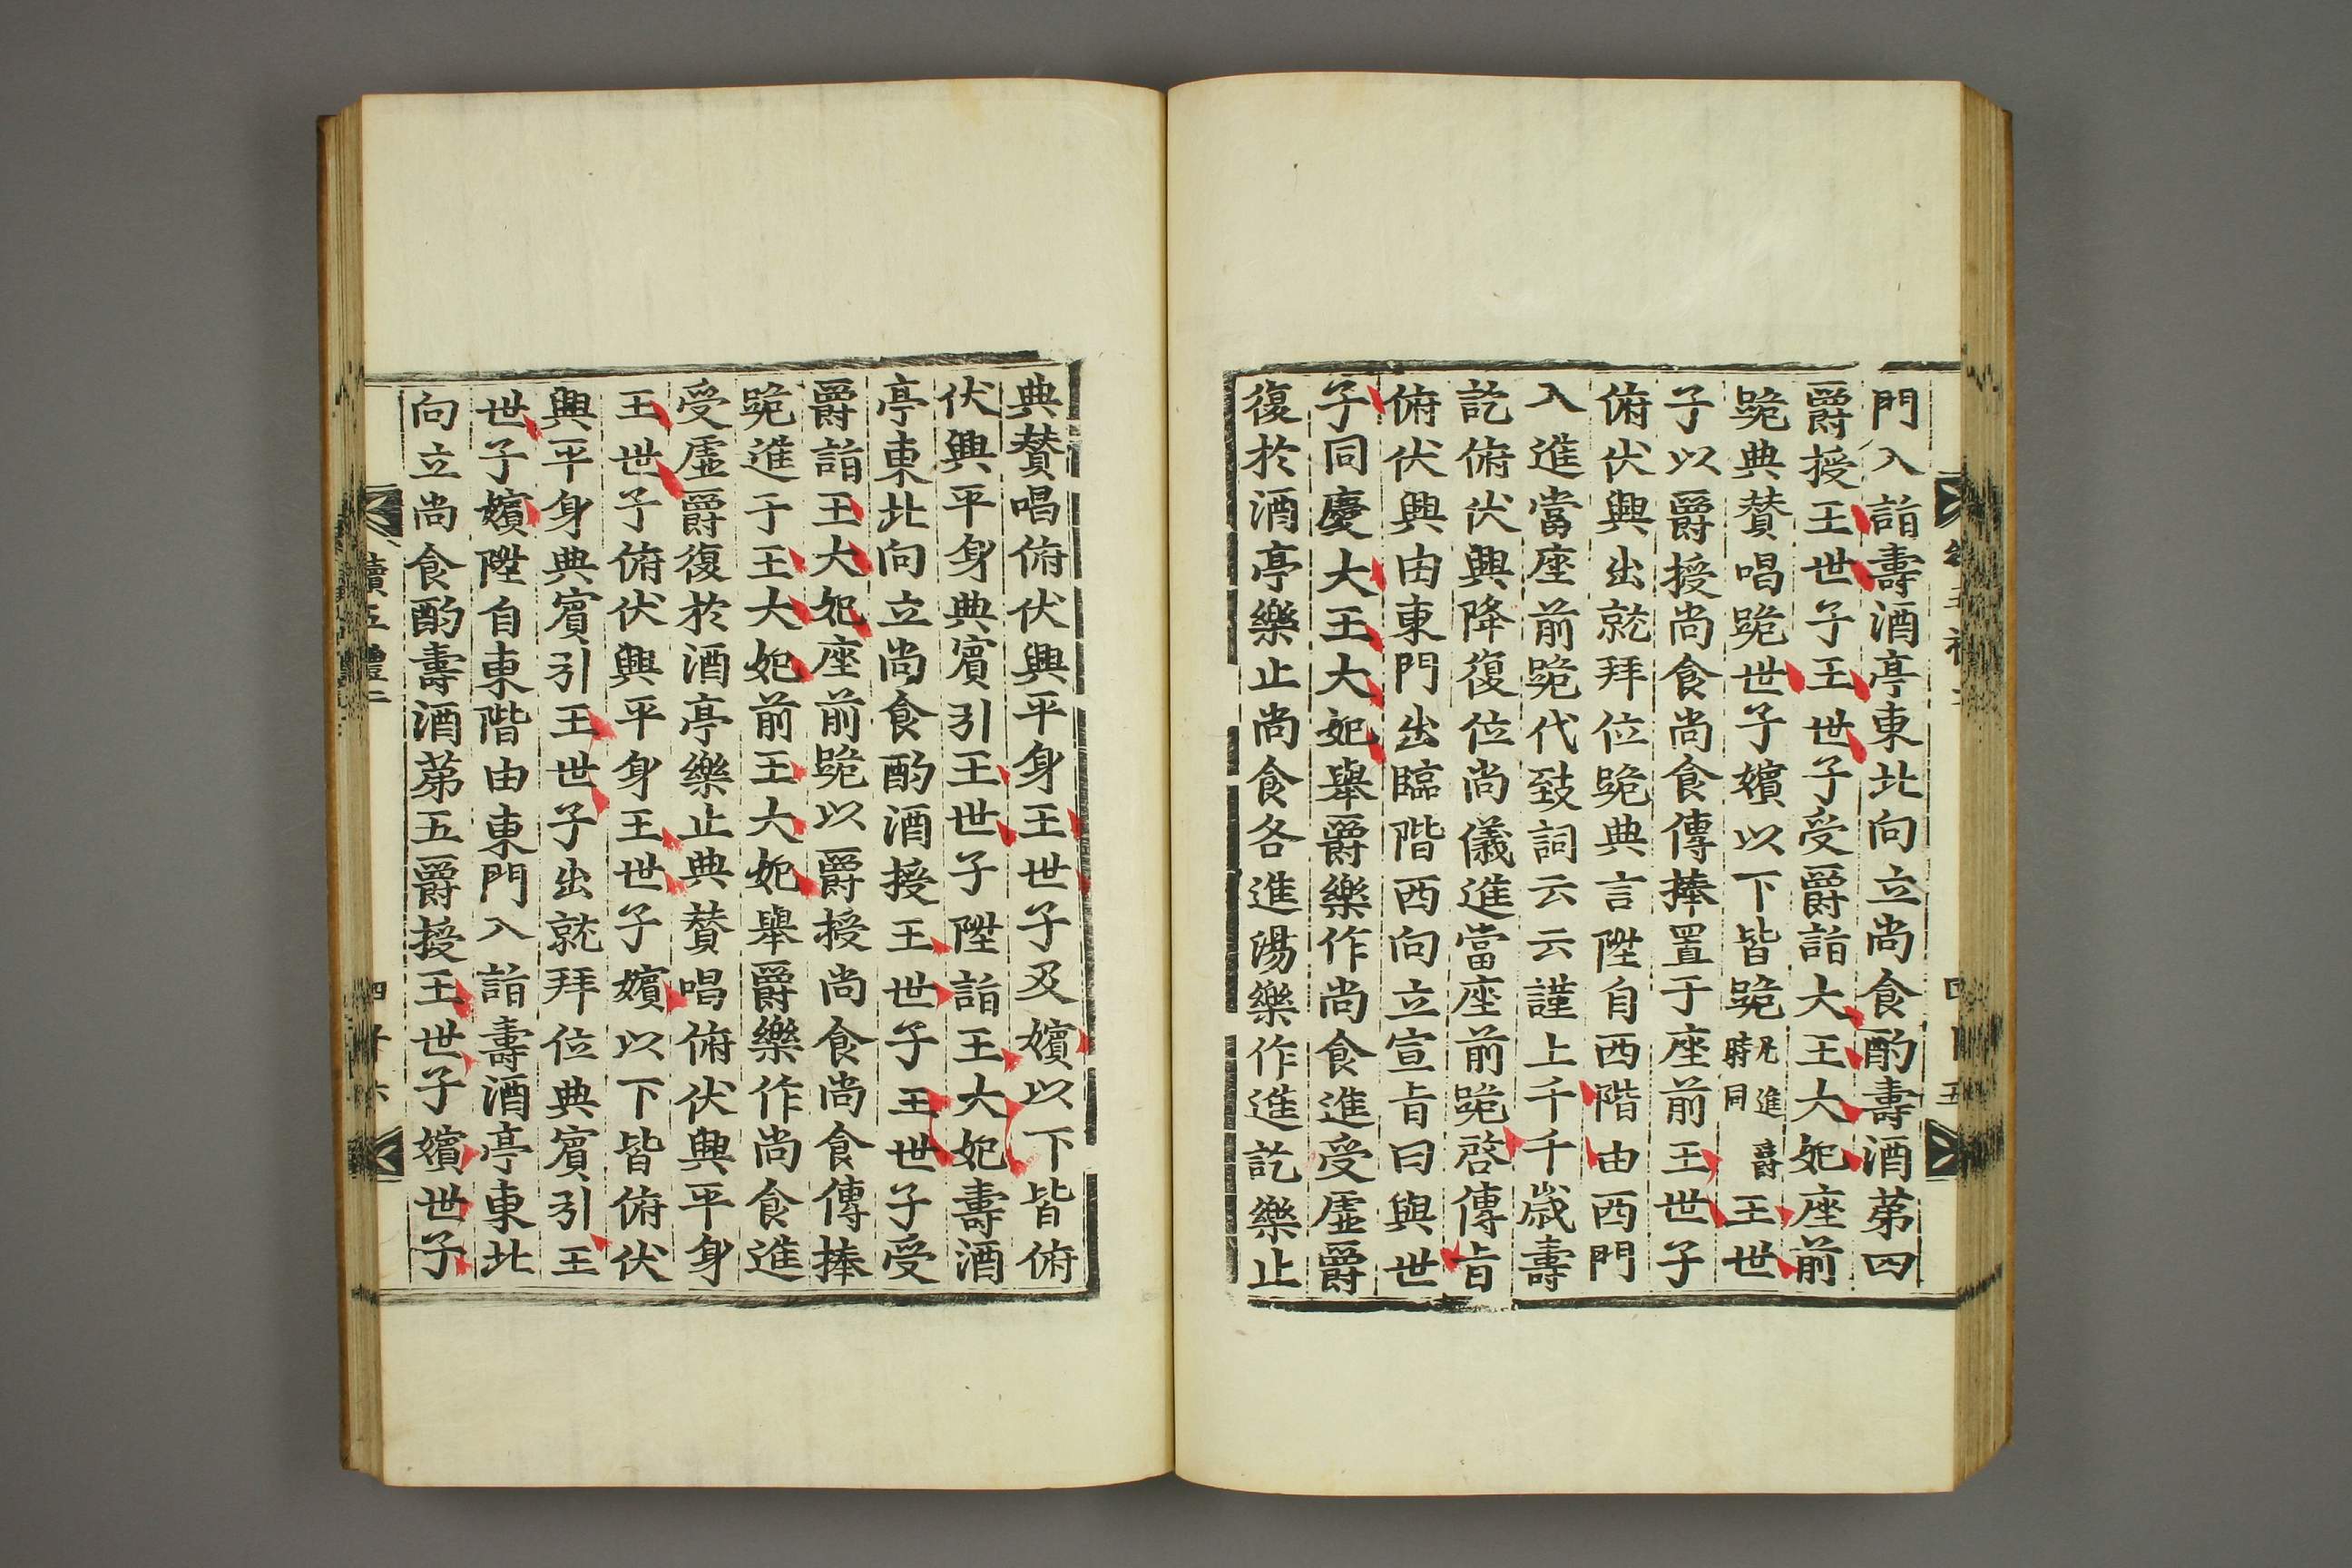 門入詣壽酒亭東北向立尚食酌壽酒苐四
爵授王世子王世子受爵詣大王大妃座前
跪典賛唱跪世子嬪以下皆跪凡進爵時同王世
子以爵授尚食尚食傳捧置于座前王世子
俯伏興出就拜位跪典言陞自西階由西門
入進當座前跪代致詞云云謹上千千歲壽
訖俯伏興降復位尚儀進當座前跪啓傳旨
俯伏興由東門出臨階西向立宣旨曰與世
子同慶大王大妃舉爵樂作尚食進受虛爵
復於酒亭樂止尚食各進湯樂作進訖樂止
典賛唱俯伏興平身王世子及嬪以下皆俯
伏興平身典賓引王世子陞詣王大妃壽酒
亭東北向立尚食酌酒授王世子王世子受
爵詣王大妃座前跪以爵授尚食尚食傳捧
跪進于王大妃前王大妃舉爵樂作尚食進
受虛爵復於酒亭樂止典賛唱俯伏興平身
王世子俯伏興平身王世子嬪以下皆俯伏
興平身典賓引王世子出就拜位典賓引王
世子嬪陞自東階由東門入詣壽酒亭東北
向立尚食酌壽酒苐五爵授王世子嬪世子
續五禮二
四十六